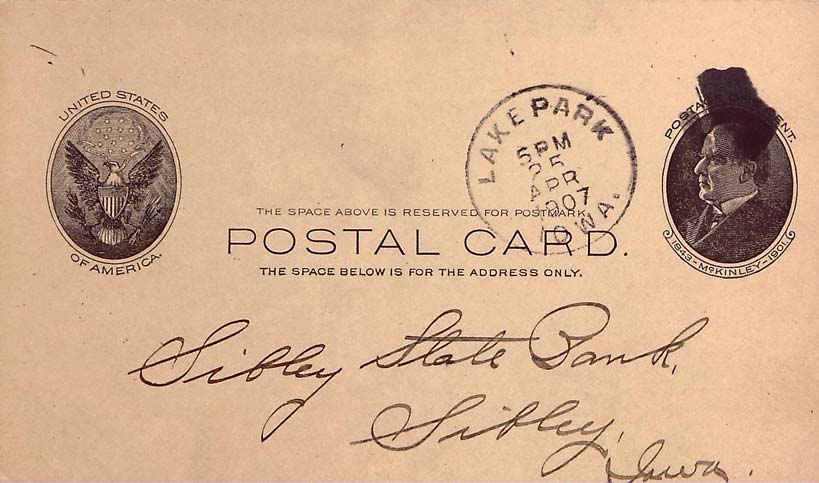 UNITED STATES
OF AMERICA.
LAKE PARK
5 PM
25
APR
1907
IOWA.
POSTAL
ENT.
1843-McKINLEY-1901.
THE SPACE ABOVE IS RESERVED FOR POSTMARK.
POSTAL CARD.
THE SPACE BELOW IS FOR THE ADDRESS ONLY.
Sibley State Bank,
Sibley,
Iowa.